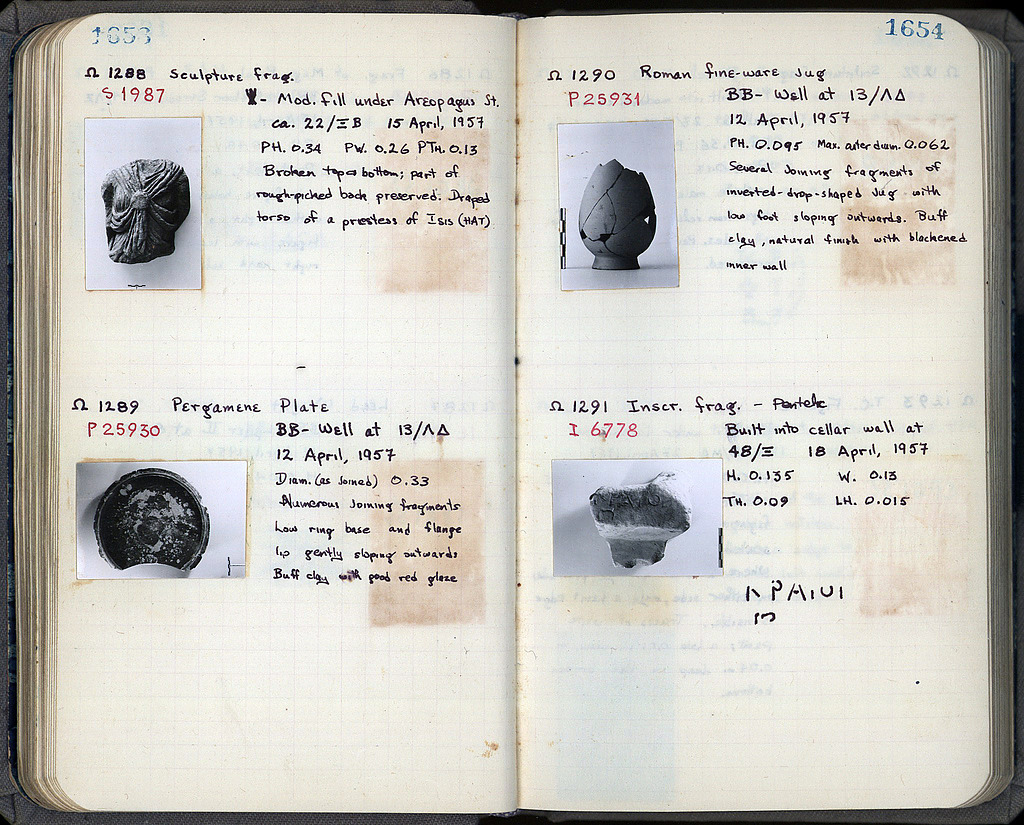 1653
Ω 1288 Sculpture frag.
S 1987
Mod. fill under Areopagus St.
ca. 22/ΞB 15 April, 1957
PH. 0.34 PW. 0.26 PTH. 0.13
Broken top bottom; part of
rough-picked back preserved. Draped
torso of a priestess of Isis (HAT)
Ω 1289 Pergamene Plate
P 25930
BB- Well at 13/ΛΔ
12 April, 1957
Diam. (as joined) 0.33
Numerous joining fragments
Low ring base and flange
lip gently sloping outwards
Buff clay with good red glaze
1654
Ω 1290 Roman fine-ware jug
P 25931
BB- Well at 13/ΛΔ
12 April, 1957
PH. 0.095 Max. diam. 0.062
Several joining fragments of
inverted-drop-shaped jug with
low foot sloping outwards. Buff
clay, natural finish with blackened
inner wall
Ω 1291 Inscr. frag. -
I 6778
Built into cellar wall at
48/Ξ 18 April, 1957
H. 0.135 W. 0.13
TH. 0.09 LH. 0.015